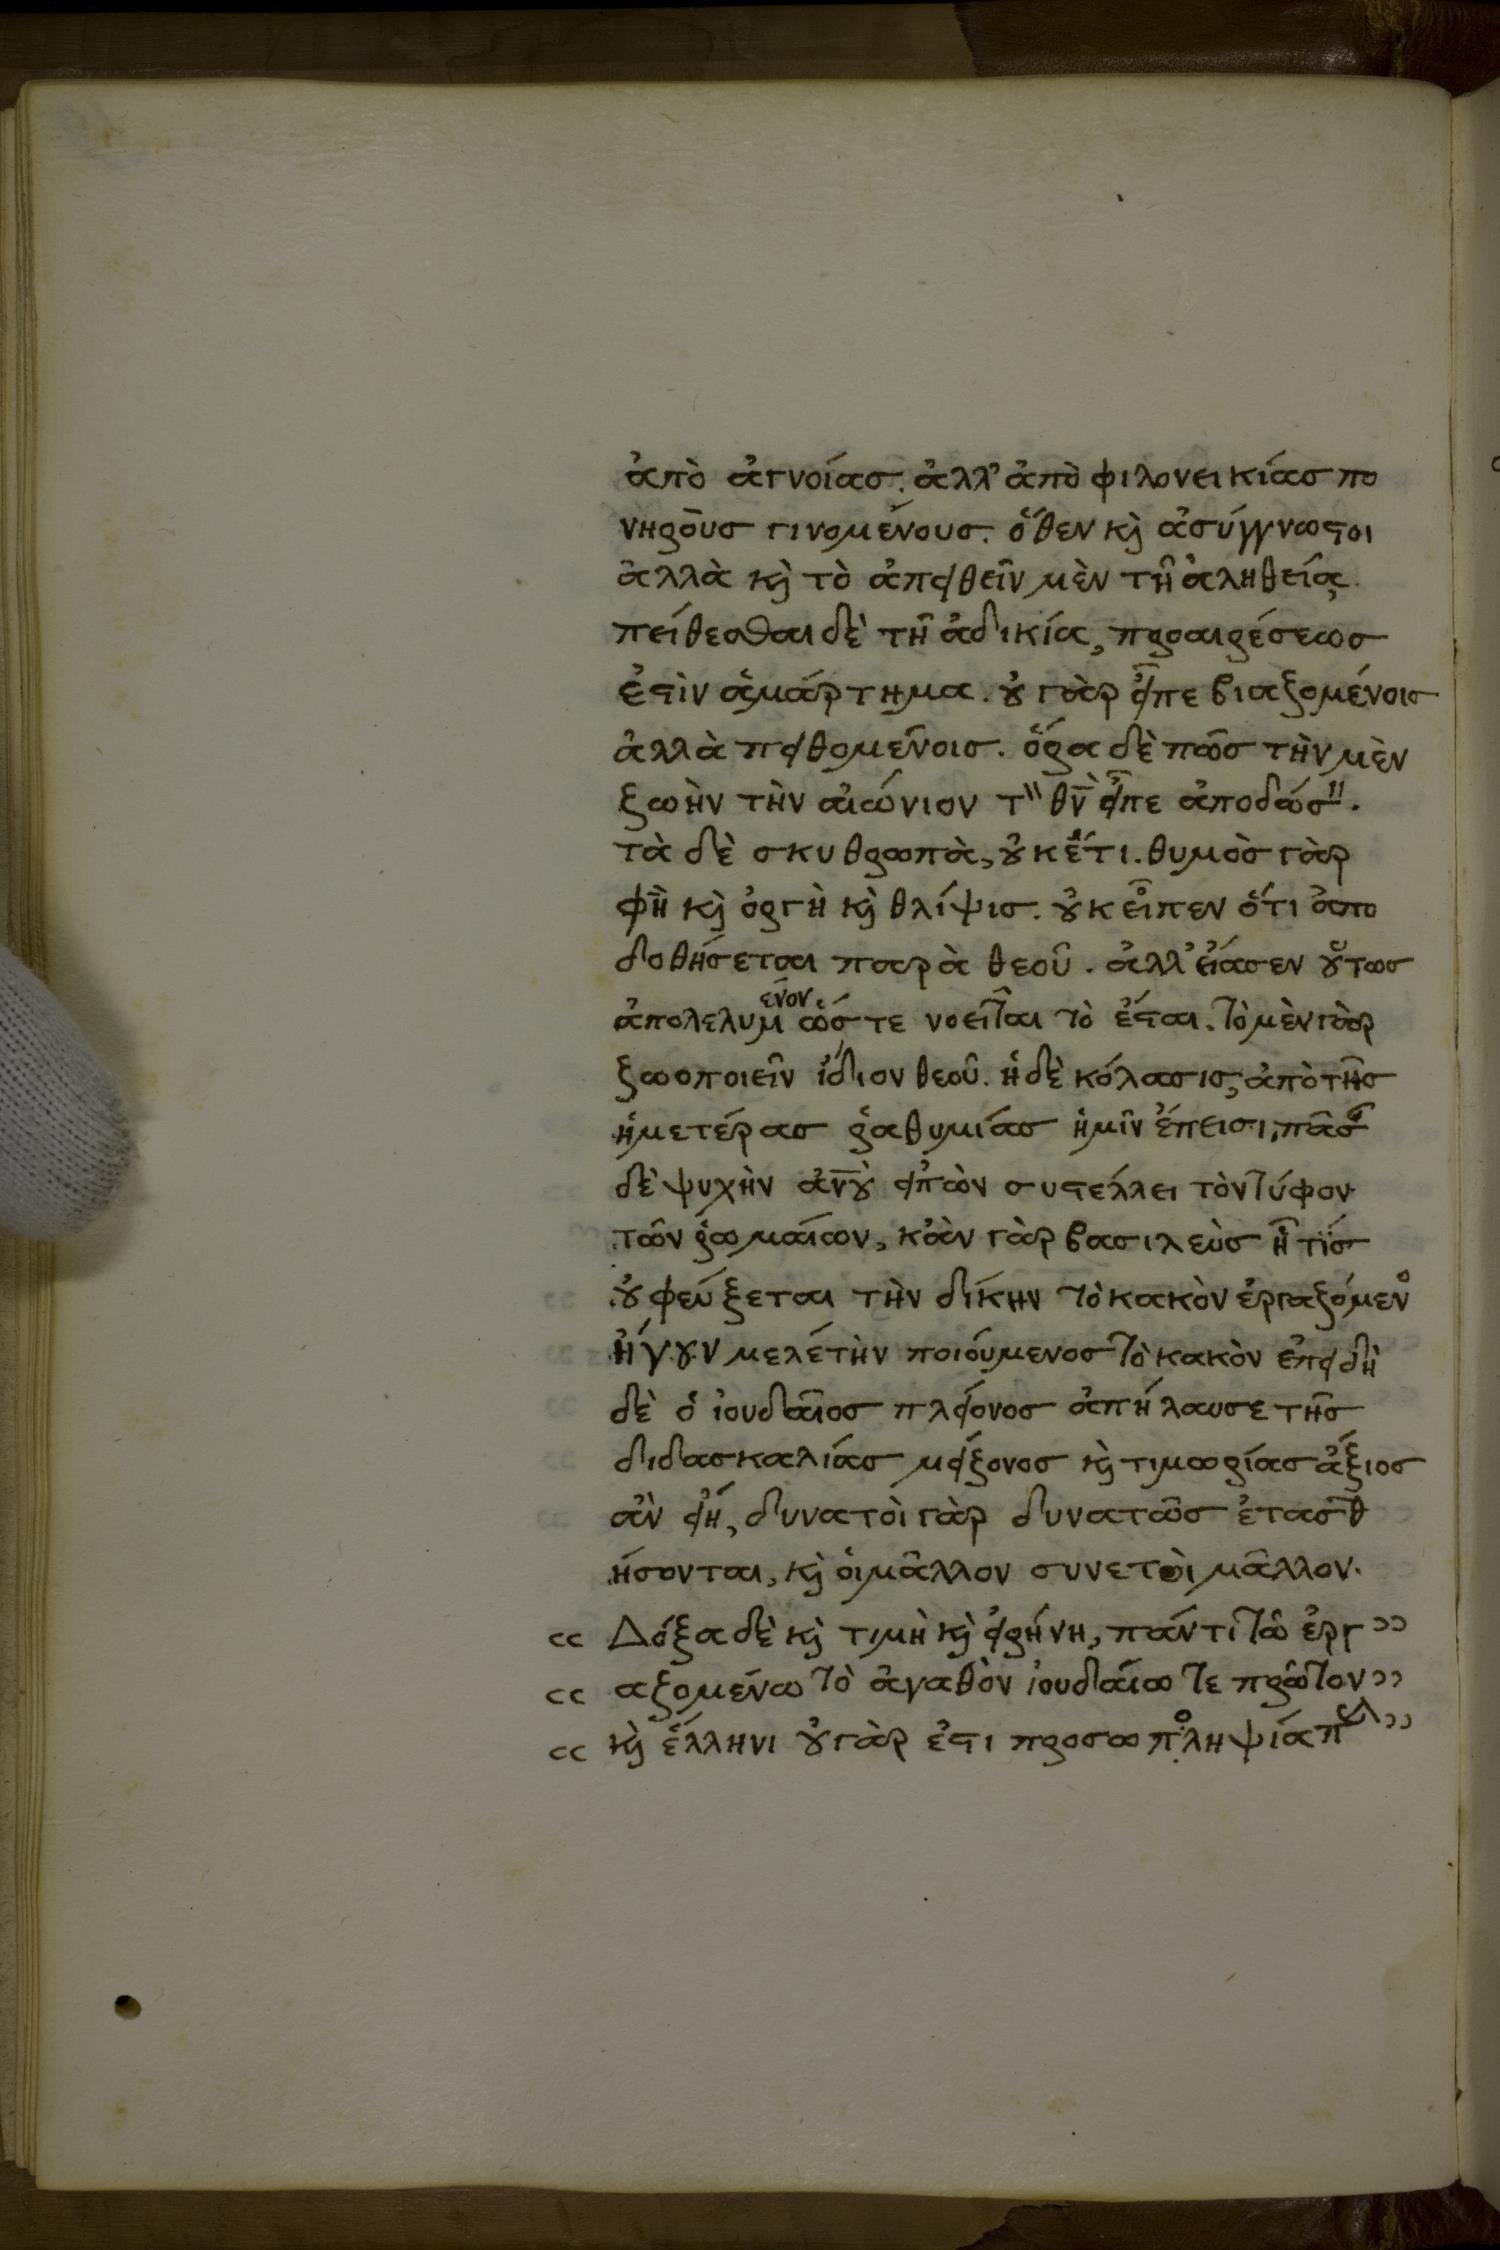 ἀπὸ ἀγνοίασ. ἀλλ' ἀπὸ φιλονεικίασ πο
νηροὺσ γινομένουσ. ὅθεν κὴ ἀσύγγνωστοι
ἀλλὰ κὴ τὸ ἀπειθεῖν μὲν τῆ ἀληθείᾳ.
πείθεσθαι δὲ τῆ ἀδικία, προαιρέσεωσ
ἐστὶν ἁμάρτημα. οὐ γὰρ εἶπε βιαζομένοισ
ἀλλὰ πειθομένοισ. ὅρα δὲ πῶσ τὴν μὲν
ζωὴν τὴν αἰώνιον τ" θν̅ εἶπε ἀποδώσ".
τὰ δὲ σκυθρωπὰ, οὐκέτι. θυμὸσ γὰρ
φὴ κὴ ὀργὴ κὴ θλίψισ. οὐκ εἶπεν ὅτι ἀπο
δοθήσεται παρὰ θεοῦ. ἀλλ' εἴασεν οὕτωσ
ἀπολελυμένον ὥστε νοεῖται τὸ ἔσται. τὸ μὲν γὰρ
ζωοποιεῖν ἴδιον θεοῦ. ἡ δὲ κόλασισ, ἀπὸ τῆσ
ἡμετέρασ ῥαθυμίασ ἡμῖν ἔπεισι, πᾶσ
δὲ ψυχὴν ἀν̅οὺ εἰπὼν συστέλλει τὸν τύφον
τῶν ῥωμαίων, κἂν γὰρ βασιλεὺσ ἦ τίσ
οὐ φεύξεται τὴν δίκην τὸ κακὸν ἐργαζόμενο
ἤγουν μελέτὴν ποιούμενοσ τὸ κακὸν ἐπειδὴ
δὲ ὁ ἰουδαῖοσ πλείονοσ ἀπήλαυσε τῆσ
διδασκαλίασ μείζονοσ κὴ τιμωρίασ ἄξιοσ
ἂν εἴη, δυνατοὶ γὰρ δυνατῶσ ἐτασθ
ήσονται, κὴ οἱ μᾶλλον συνετοὶ μᾶλλον.
Δόξα δὲ κὴ τιμὴ κὴ εἰρήνη, πάντι τῶ ἐργ
αζομένω τὸ ἀγαθὸν ἰουδαίω τε πρῶτον
κὴ ἕλληνι οὐ γὰρ ἐστι προσωποληψία π